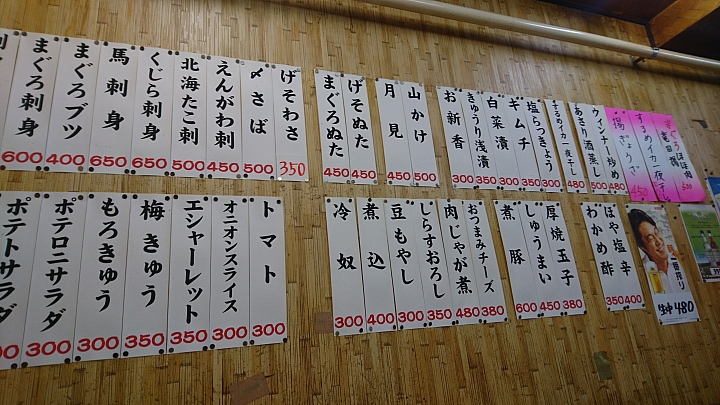 げそわさ 350
〆さば 500
えんがわ刺 450
北海たこ刺 500
くじら刺身 650
馬刺身 650
まぐろブツ 400
まぐろ刺身 600
げそぬた 450
まぐろぬた 450
山かけ 500
月見 450
塩らっきょう 300
キムチ 350
白菜漬 300
きゅうり浅漬 350
お新香 300
するめイカ一夜干し 480
ウインナー炒め 480
あさり酒蒸し 500
揚ぎょうざ 450
するめイカ一夜干し
まぐろほほ肉 竜田揚 500
トマト 300
オニオンスライス 300
エシャーレット 350
梅きゅう 350
もろきゅう 300
ポテロニサラダ 300
ポテトサラダ
おつまみチーズ 380
肉じゃが煮 480
しらすおろし 350
豆もやし 300
煮込 400
冷奴 300
厚焼玉子 380
しゅうまい 450
煮豚 600
ほや塩辛 400
わかめ酢 350
一番搾り
生中 480